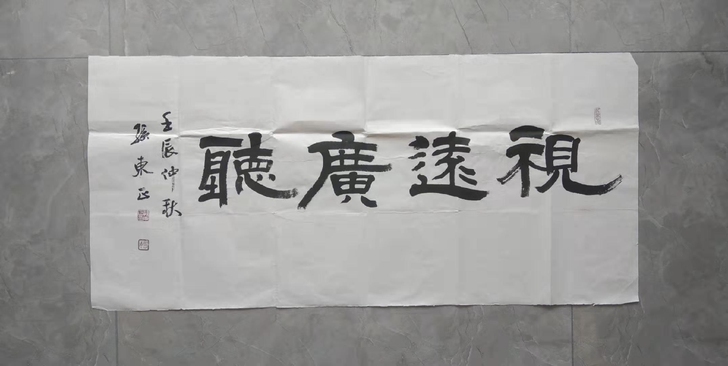 視遠廣聽
壬辰仲秋
孫東正